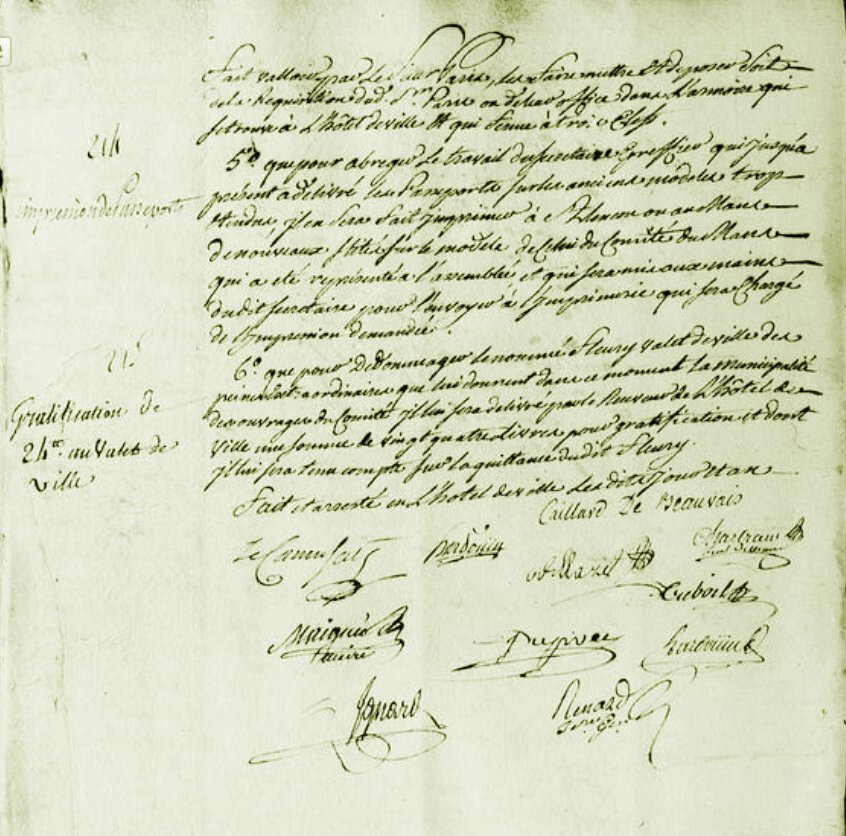 fait valloir par le Sieur Paris, les faire mettre et deposer soit
de la Requisition dud. Sr. Paris ou de leur office dans l'armoire qui
se trouve à l'hôtel de ville et qui ferme à trois clefs.
214
impression de Passeports
5°. que pour abreger le travail du secretaire Greffier qui jusqu'a
présent a délivré les Passeports sur les anciens modeles trop
etendus, il en sera fait imprimer à Alencon ou au Mans
de nouveaux sur le modele de celui du Comité du Mans
qui a eté représenté a l'assemblée et qui sera mis aux mains
dudit secretaire pour l'envoyer à l'imprimerie qui sera chargé
de l'impression demandée.
215
Gratification de
24lt. au Valet de
ville
6°. que pour Dedommager le nommé Fleury valet de ville des
peines extraordinaires que lui donnent dans ce moment la municipalité
des ouvrages du Comité il lui sera delivré par le Receveur de l'hôtel de
ville une somme de vingt quatre livres pour gratification et dont
il lui sera tenu compte sur la quittance dudit Fleury.
Fait et arresté en l'hôtel de ville les dits jour et an
Caillard De Beauvais
Hardouin
Chartrain
Dubois
maire
Hardouin
Renard